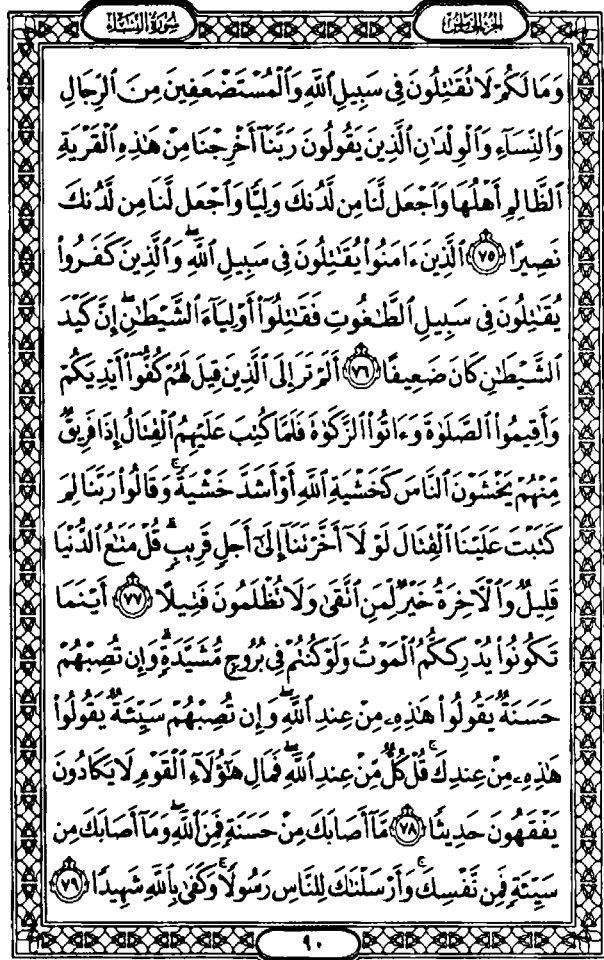 سُورَةُ النِّسَاءِ
الجُزْءُ الخَامِسُ
وَمَا لَكُمۡ لَا تُقَٰتِلُونَ فِي سَبِيلِ ٱللَّهِ وَٱلۡمُسۡتَضۡعَفِينَ مِنَ ٱلرِّجَالِ
وَٱلنِّسَآءِ وَٱلۡوِلۡدَٰنِ ٱلَّذِينَ يَقُولُونَ رَبَّنَآ أَخۡرِجۡنَا مِنۡ هَٰذِهِ ٱلۡقَرۡيَةِ
ٱلظَّالِمِ أَهۡلُهَا وَٱجۡعَل لَّنَا مِن لَّدُنكَ وَلِيّٗا وَٱجۡعَل لَّنَا مِن لَّدُنكَ
نَصِيرًا ٧٥ ٱلَّذِينَ ءَامَنُواْ يُقَٰتِلُونَ فِي سَبِيلِ ٱللَّهِۖ وَٱلَّذِينَ كَفَرُواْ
يُقَٰتِلُونَ فِي سَبِيلِ ٱلطَّٰغُوتِ فَقَٰتِلُوٓاْ أَوۡلِيَآءَ ٱلشَّيۡطَٰنِۖ إِنَّ كَيۡدَ
ٱلشَّيۡطَٰنِ كَانَ ضَعِيفًا ٧٦ أَلَمۡ تَرَ إِلَى ٱلَّذِينَ قِيلَ لَهُمۡ كُفُّوٓاْ أَيۡدِيَكُمۡ
وَأَقِيمُواْ ٱلصَّلَوٰةَ وَءَاتُواْ ٱلزَّكَوٰةَ فَلَمَّا كُتِبَ عَلَيۡهِمُ ٱلۡقِتَالُ إِذَا فَرِيقٞ
مِّنۡهُمۡ يَخۡشَوۡنَ ٱلنَّاسَ كَخَشۡيَةِ ٱللَّهِ أَوۡ أَشَدَّ خَشۡيَةٗۚ وَقَالُواْ رَبَّنَا لِمَ
كَتَبۡتَ عَلَيۡنَا ٱلۡقِتَالَ لَوۡلَآ أَخَّرۡتَنَآ إِلَىٰٓ أَجَلٖ قَرِيبٖۗ قُلۡ مَتَٰعُ ٱلدُّنۡيَا
قَلِيلٞ وَٱلۡأٓخِرَةُ خَيۡرٞ لِّمَنِ ٱتَّقَىٰ وَلَا تُظۡلَمُونَ فَتِيلًا ٧٧ أَيۡنَمَا
تَكُونُواْ يُدۡرِككُّمُ ٱلۡمَوۡتُ وَلَوۡ كُنتُمۡ فِي بُرُوجٖ مُّشَيَّدَةٖۗ وَإِن تُصِبۡهُمۡ
حَسَنَةٞ يَقُولُواْ هَٰذِهِۦ مِنۡ عِندِ ٱللَّهِۖ وَإِن تُصِبۡهُمۡ سَيِّئَةٞ يَقُولُواْ
هَٰذِهِۦ مِنۡ عِندِكَۚ قُلۡ كُلّٞ مِّنۡ عِندِ ٱللَّهِۖ فَمَالِ هَٰٓؤُلَآءِ ٱلۡقَوۡمِ لَا يَكَادُونَ
يَفۡقَهُونَ حَدِيثٗا ٧٨ مَّآ أَصَابَكَ مِنۡ حَسَنَةٖ فَمِنَ ٱللَّهِۖ وَمَآ أَصَابَكَ مِن
سَيِّئَةٖ فَمِن نَّفۡسِكَۚ وَأَرۡسَلۡنَٰكَ لِلنَّاسِ رَسُولٗاۚ وَكَفَىٰ بِٱللَّهِ شَهِيدٗا ٧٩
٩٠